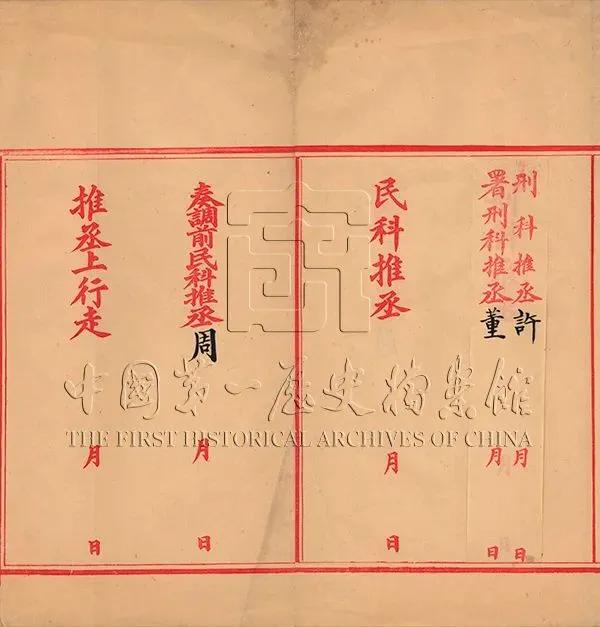 刑科推丞許 月 日
署刑科推丞董 月 日
民科推丞 月 日
奏調前民科推丞周 月 日
推丞上行走 月 日
中國第一歷史檔案館
THE FIRST HISTORICAL ARCHIVES OF CHINA